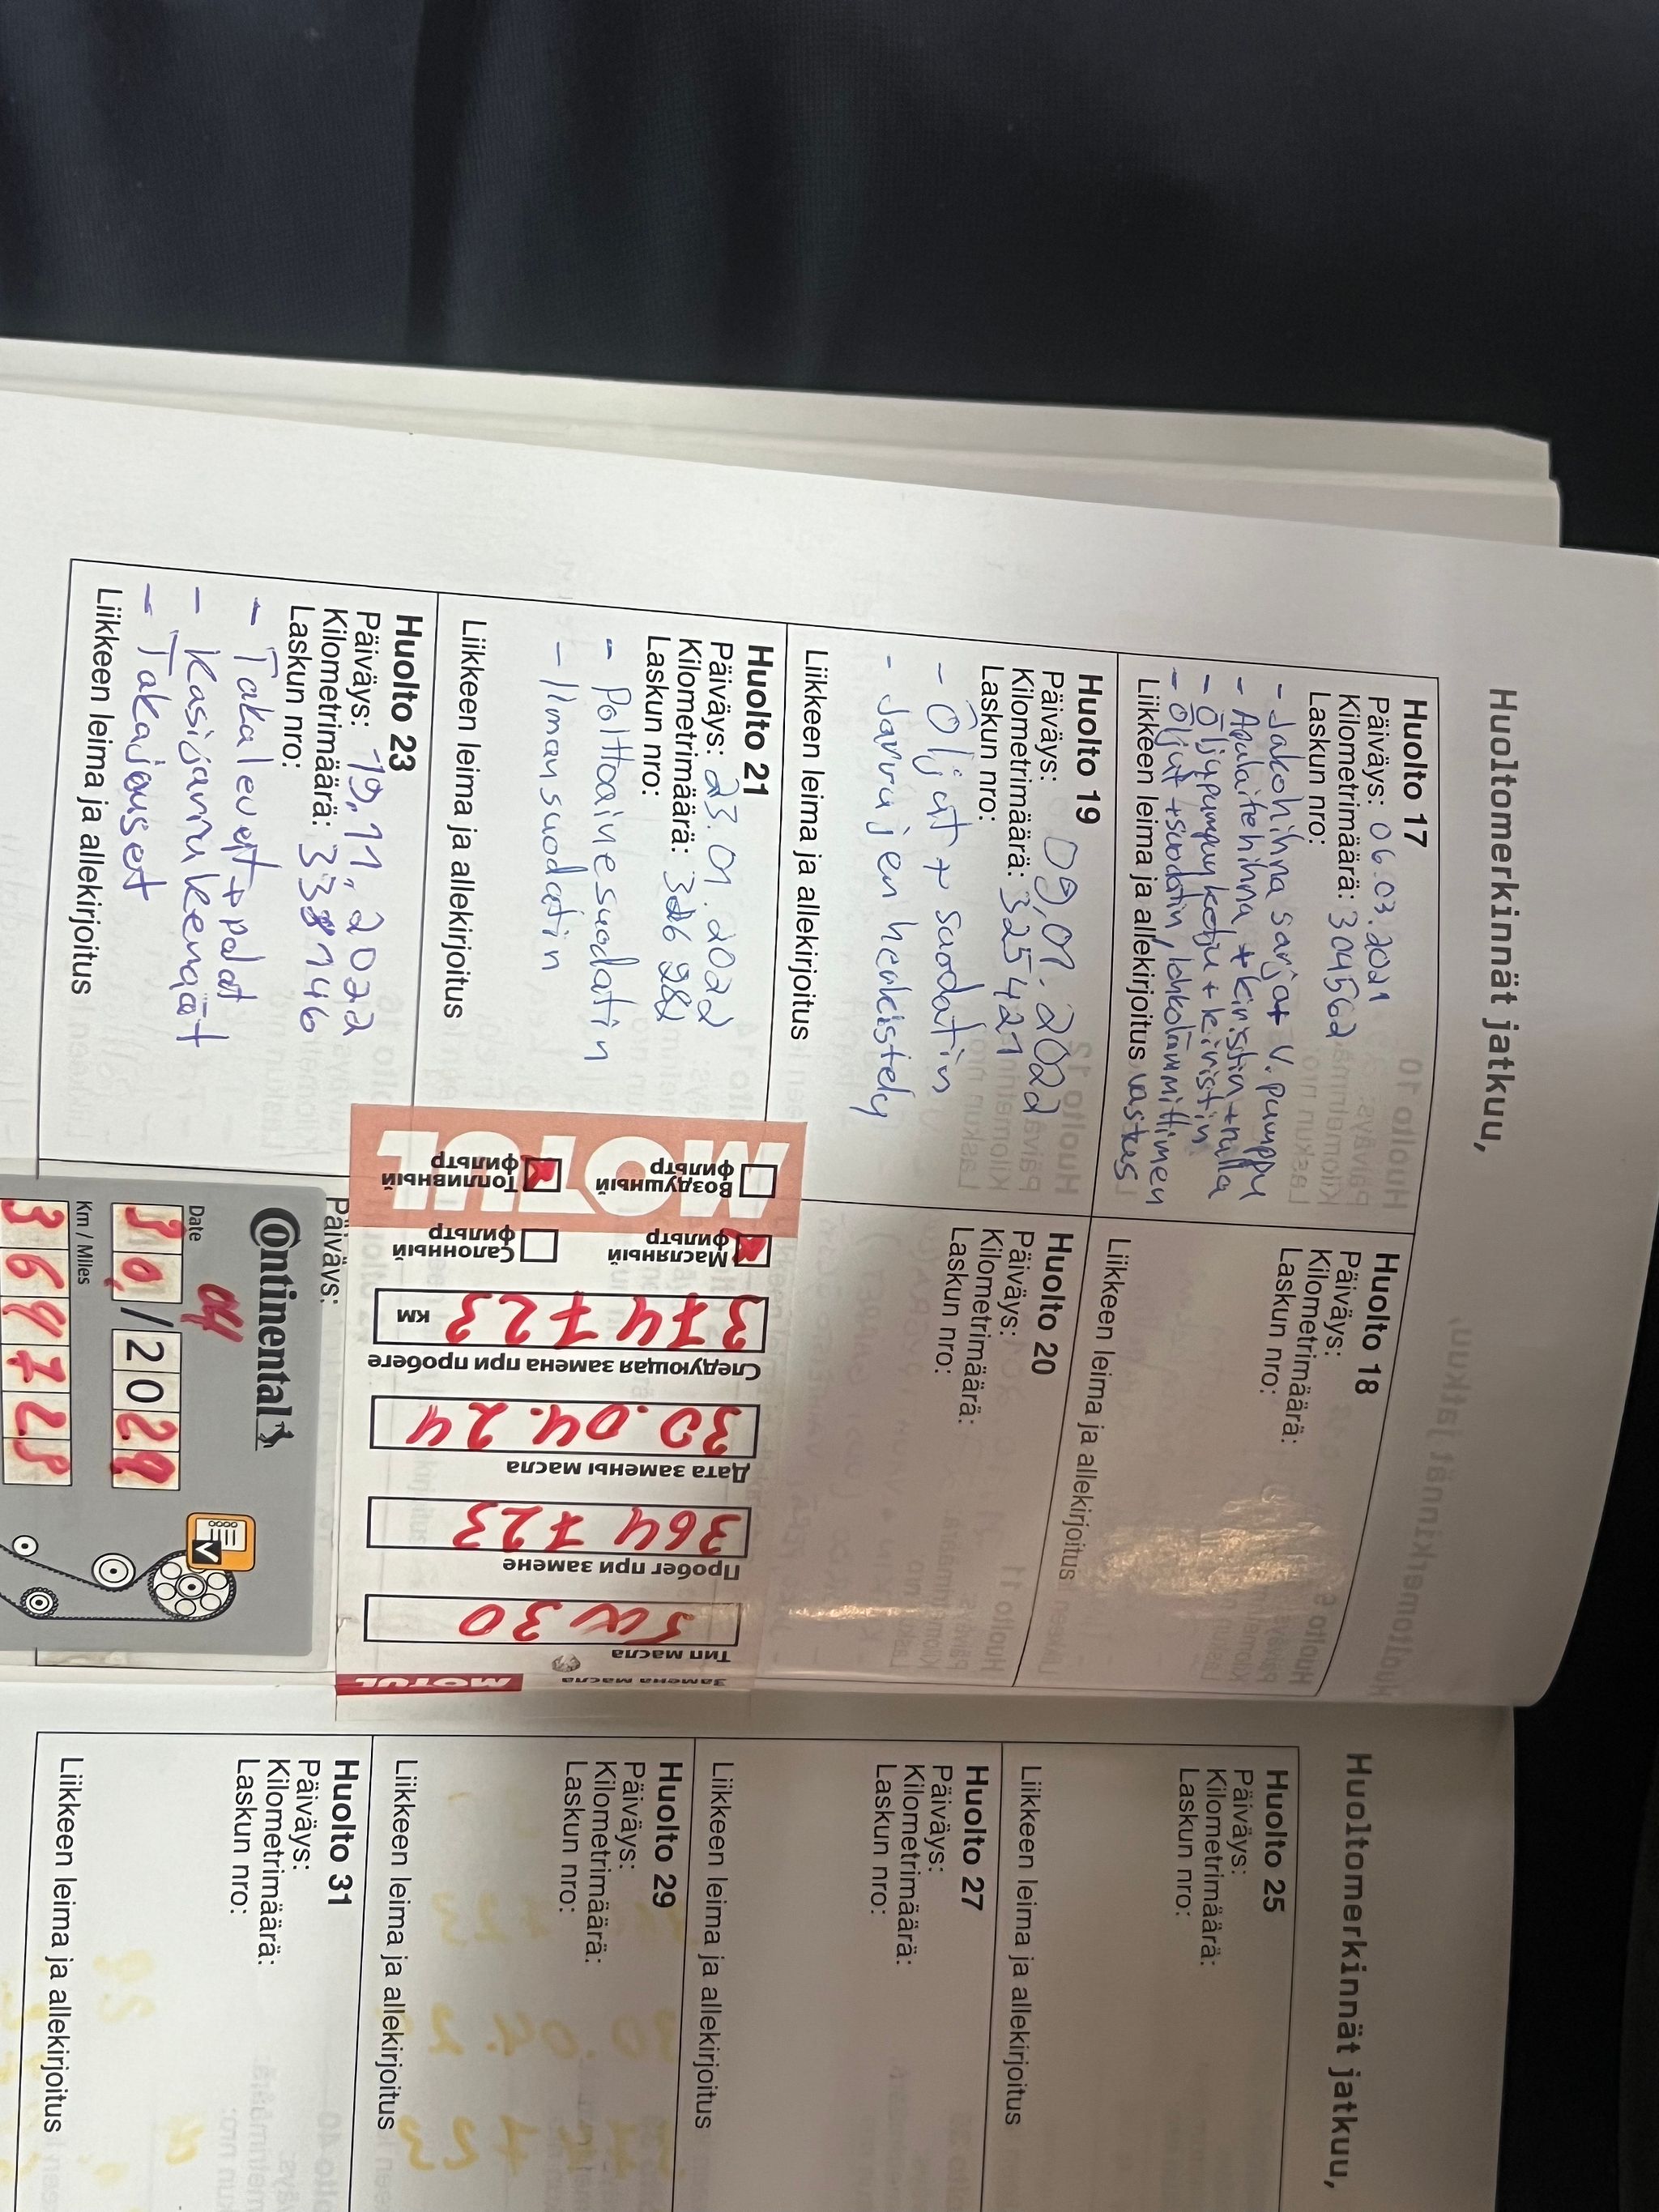 Huoltomerkinnät jatkuu,
Huolto 17
Päiväys: 06.03.2021
Kilometrimäärä: 304562
Laskun nro:
- Jakohihna sarja + V. pumppu
- Apulaitehihna + kiristin + rulla
- Öljypumpun ketju + kiristin
- Öljyt + suodatin, lohkolämmittimen vastus
Liikkeen leima ja allekirjoitus
Huolto 18
Päiväys:
Kilometrimäärä:
Laskun nro:
Liikkeen leima ja allekirjoitus
Huolto 19
Päiväys: 09.01.2022
Kilometrimäärä: 325421
Laskun nro:
- Öljyt + suodatin
- Jarrujen herkistely
Liikkeen leima ja allekirjoitus
Huolto 20
Päiväys:
Kilometrimäärä:
Laskun nro:
Huolto 21
Päiväys: 23.01.2022
Kilometrimäärä:
Laskun nro:
- Polttoainesuodatin
- Ilmansuodatin
Liikkeen leima ja allekirjoitus
Замена масла MOTUL
Тип масла
5W30
Пробег при замене
364723
Дата замены масла
30.04.24
Следующая замена при пробеге
374723 км
Масляный фильтр
Салонный фильтр
Воздушный фильтр
Топливный фильтр
MOTUL
Huolto 23
Päiväys: 19.11.2022
Kilometrimäärä:
Laskun nro:
- Takalevyt + palat
- Käsijarru kengät
- Takajouset
Liikkeen leima ja allekirjoitus
Päiväys:
Continental
04
Date
30. / 2024
Km / Miles
364723
Huoltomerkinnät jatkuu,
Huolto 25
Päiväys:
Kilometrimäärä:
Laskun nro:
Liikkeen leima ja allekirjoitus
Huolto 27
Päiväys:
Kilometrimäärä:
Laskun nro:
Liikkeen leima ja allekirjoitus
Huolto 29
Päiväys:
Kilometrimäärä:
Laskun nro:
Liikkeen leima ja allekirjoitus
Huolto 31
Päiväys:
Kilometrimäärä:
Laskun nro:
Liikkeen leima ja allekirjoitus